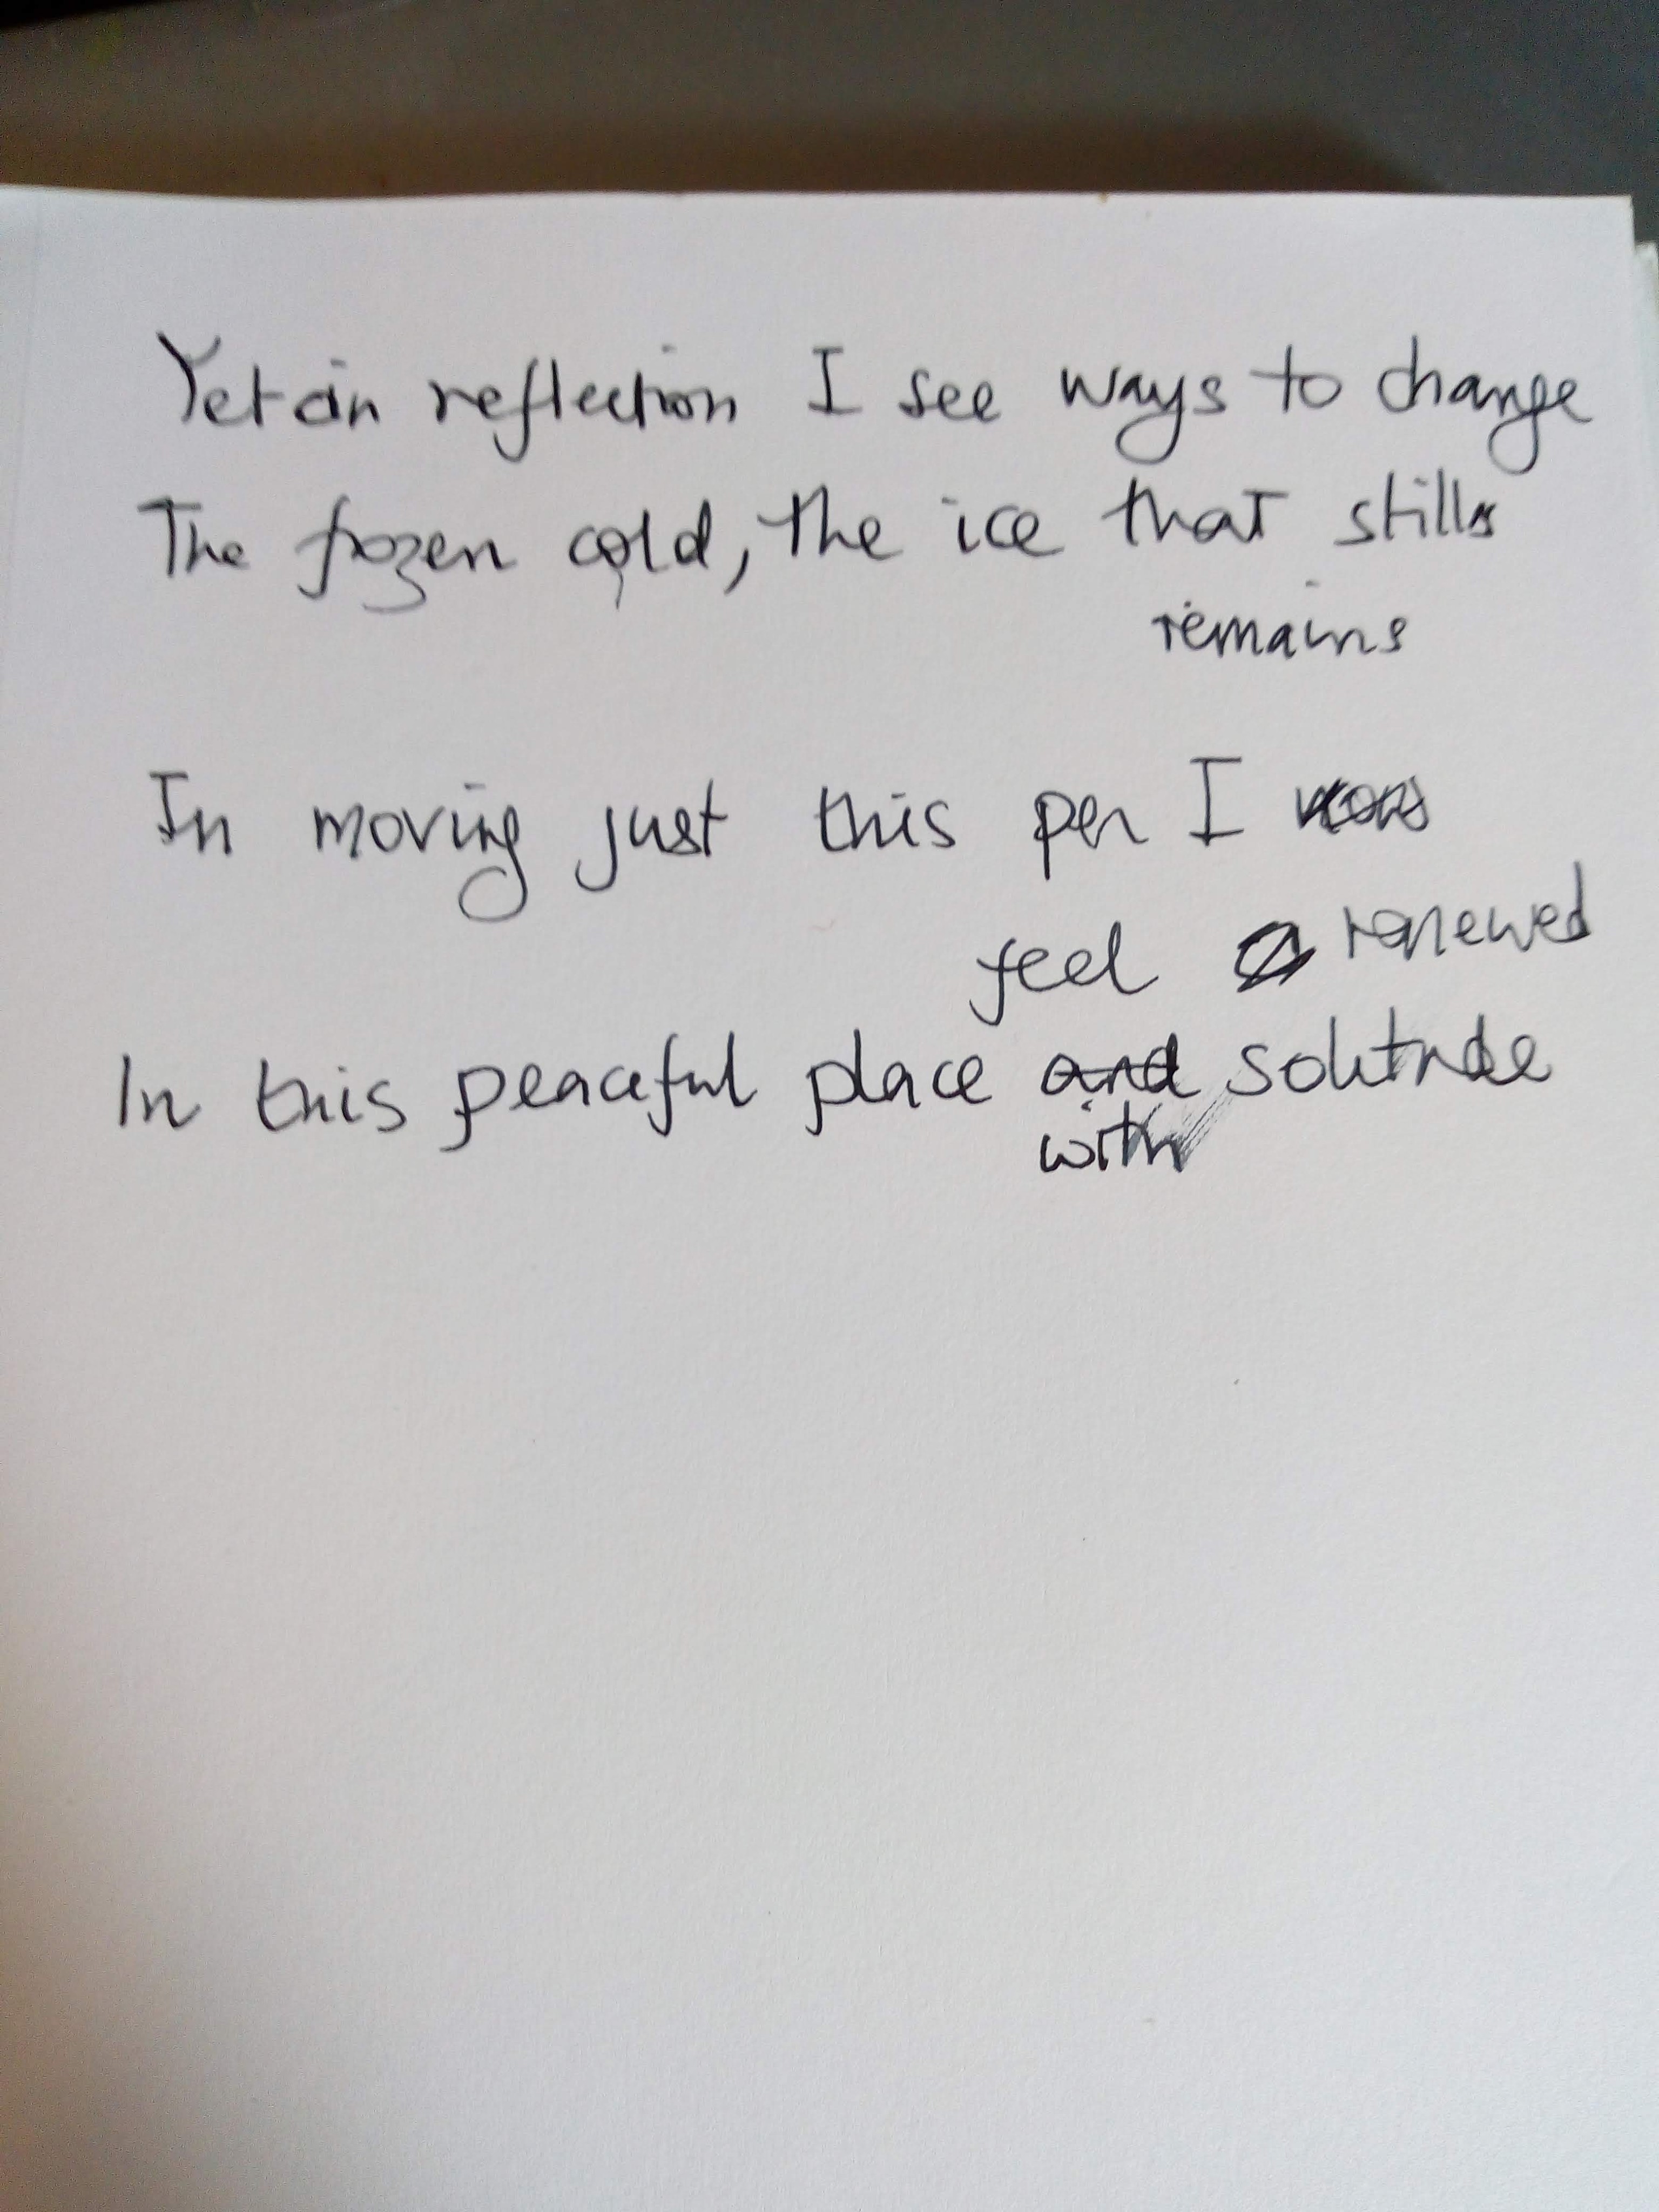 Yet in reflection I see ways to change
The frozen cold, the ice that still
remains
In moving just this pen I
feel renewed
In this peaceful place and solitude
with